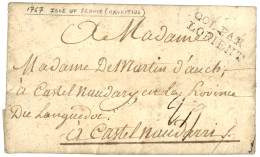 1767 ISLE OF FRANCE (MAURITIUS)
COL. PAR
LORIENT
A Madame
Madame De Martin d'auch
a Castelnaudary en la province
Du Languedoc
a Castelnaudarri